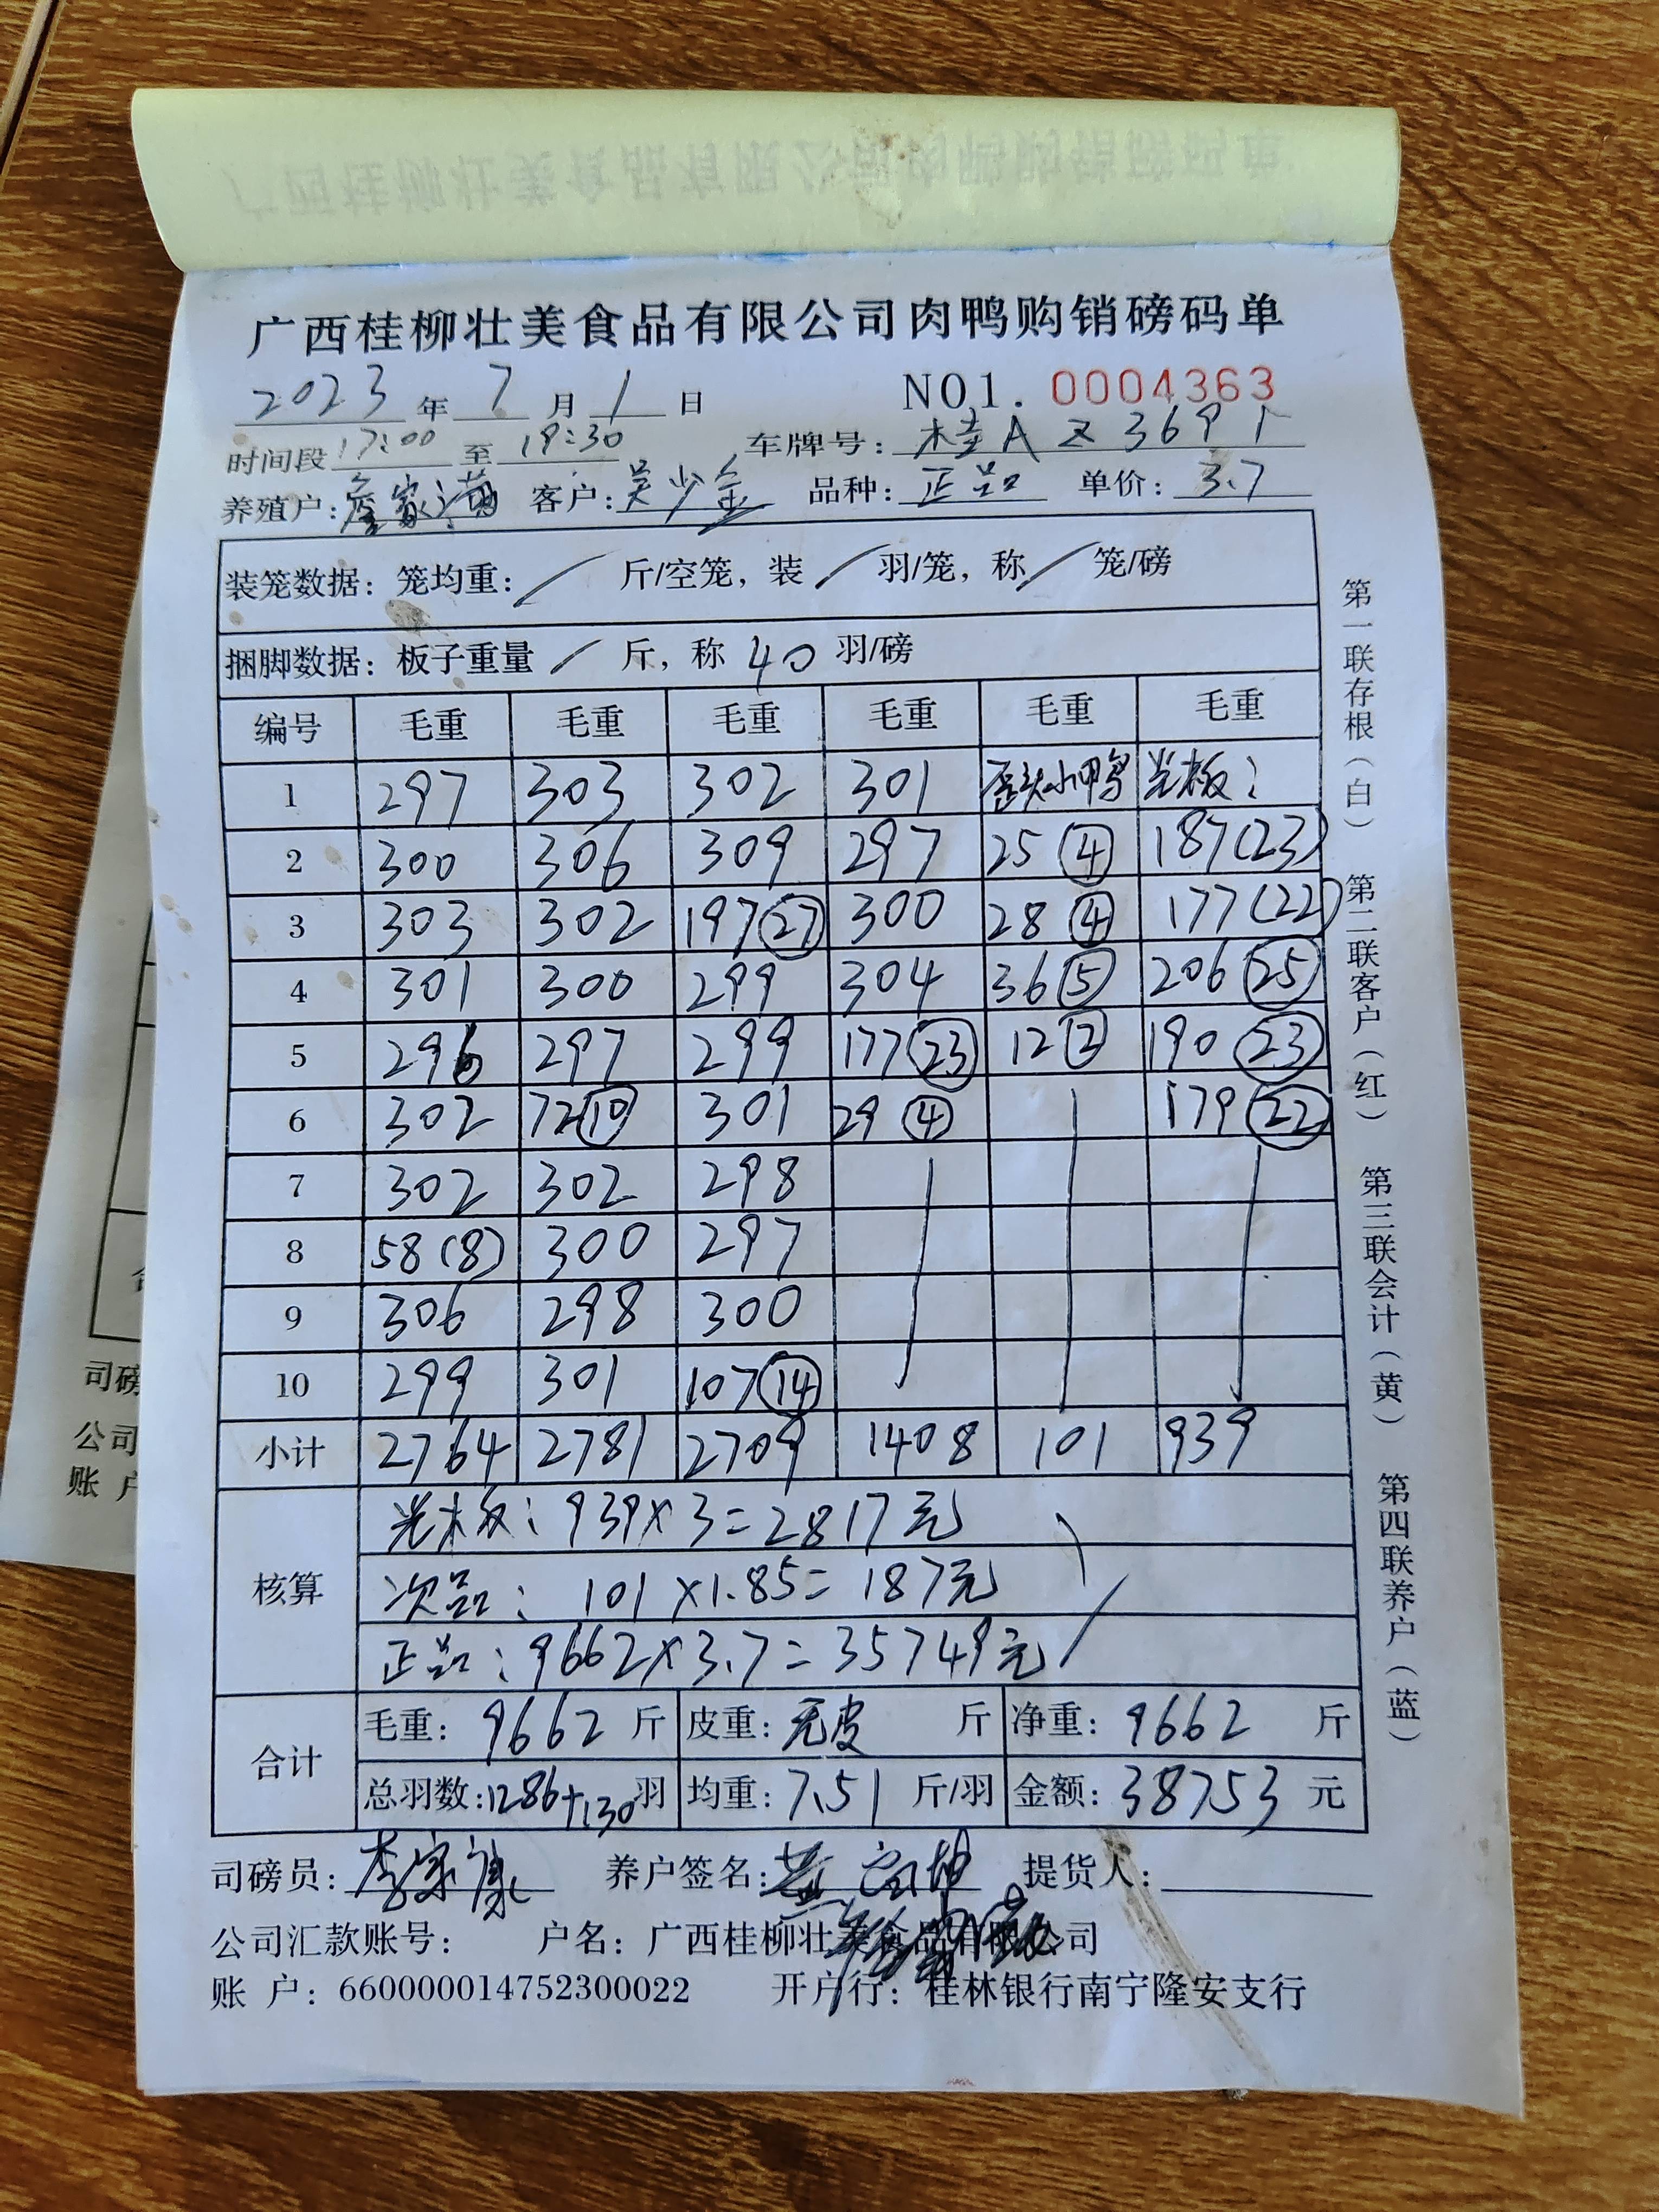 广西桂柳壮美食品有限公司肉鸭购销磅码单
2023年7月1日 NO1. 0004363
时间段17:00至19:30 车牌号: 桂A
养殖户: 客户:吴少金 品种:正品 单价:3.7
装笼数据: 笼均重: / 斤/空笼, 装 / 羽/笼, 称 / 笼/磅
捆脚数据: 板子重量 / 斤, 称 40 羽/磅
编号 毛重 毛重 毛重 毛重 毛重 毛重
1 297 303 302 301 歪头小鸭 光板:
2 300 306 309 297 25 ④ 187(23)
3 303 302 197㉗ 300 28 ④ 177(22)
4 301 300 299 304 36⑤ 206㉕
5 296 297 299 177㉓ 12② 190㉓
6 302 72⑩ 301 29④ 179㉒
7 302 302 298
8 58(8) 300 297
9 306 298 300
10 299 301 107⑭
小计 2764 2781 2709 1408 101 939
核算
光板: 939×3=2817元
次品: 101×1.85=187元
正品: 9662×3.7=35749元
合计
毛重: 9662 斤 皮重: 无皮 斤 净重: 9662 斤
总羽数:1286+130羽 均重: 7.51 斤/羽 金额: 38753 元
司磅员: 养户签名: 提货人:
公司汇款账号: 户名: 广西桂柳壮美食品有限公司
账 户: 660000014752300022 开户行: 桂林银行南宁隆安支行
第一联存根(白) 第二联客户(红) 第三联会计(黄) 第四联养户(蓝)
司磅
公司
账 户